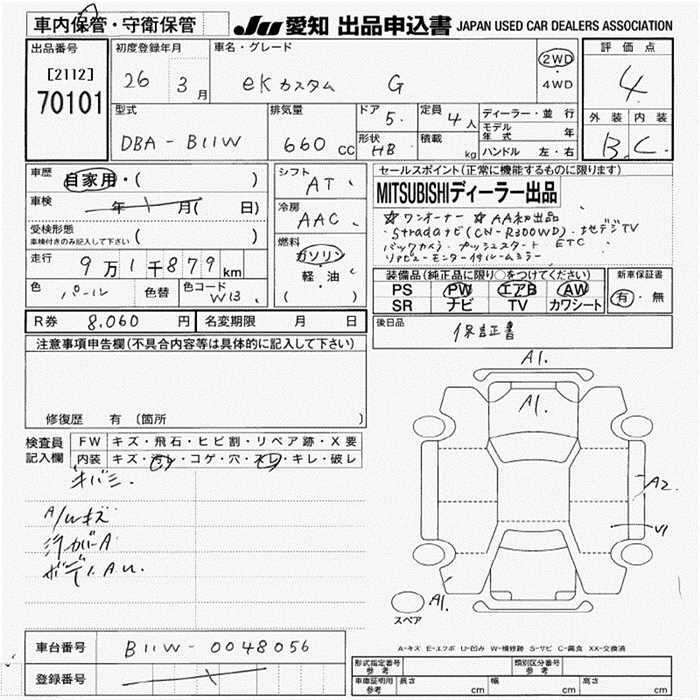 車内保管・守衛保管
JU 愛知 出品申込書 JAPAN USED CAR DEALERS ASSOCIATION
出品番号 初度登録年月 車名・グレード 評価点
[2112] 26 3月 eKカスタム G 2WD・4WD 4
70101
型式 排気量 ドア 定員 ディーラー・並行 外装 内装
DBA-B11W 660cc 5. 4人 モデル年式 年 B. C.
形状 HB 積載 kg ハンドル 左・右
車歴 自家用・( ) シフト AT セールスポイント(正常に機能するものに限ります)
MITSUBISHIディーラー出品
車検 年 月( 日) 冷房 AAC ☆ワンオーナー ☆AA初出品
・Stradaナビ(CN-R300WD)・地デジTV
受検形態 車検付きのみ記入して下さい ( ) 燃料 ガソリン・軽・油 ( ) バックカメラ プッシュスタート ETC
リアビューモニター付ルームミラー
走行 9万1千879km
色 パール 色替 色コード W13
装備品(純正品に限り○をつけてください) 新車保証書
PS PW エアB AW 有・無
SR ナビ TV カワシート
R券 8,060円 名変期限 月 日
後日品 保証書
注意事項申告欄(不具合内容等は具体的に記入して下さい)
修復歴 有 〔箇所 〕
検査員記入欄 FW キズ・飛石・ヒビ割・リペア跡・X要
内装 キズ・汚レ・コゲ・穴・スレ・キレ・破レ
キバミ.
A/Wキズ
汚カバーA
ボディA.U.
A1.
A1.
A2
U1
A1.
スペア
A-キズ E-エクボ U-凹み W-補修跡 S-サビ C-腐食 XX-交換済
車台番号 B11W-0048056
登録番号
形式指定番号 参考 類別区分番号 参考
車庫証明用 参考 長さ cm 幅 cm 高さ cm